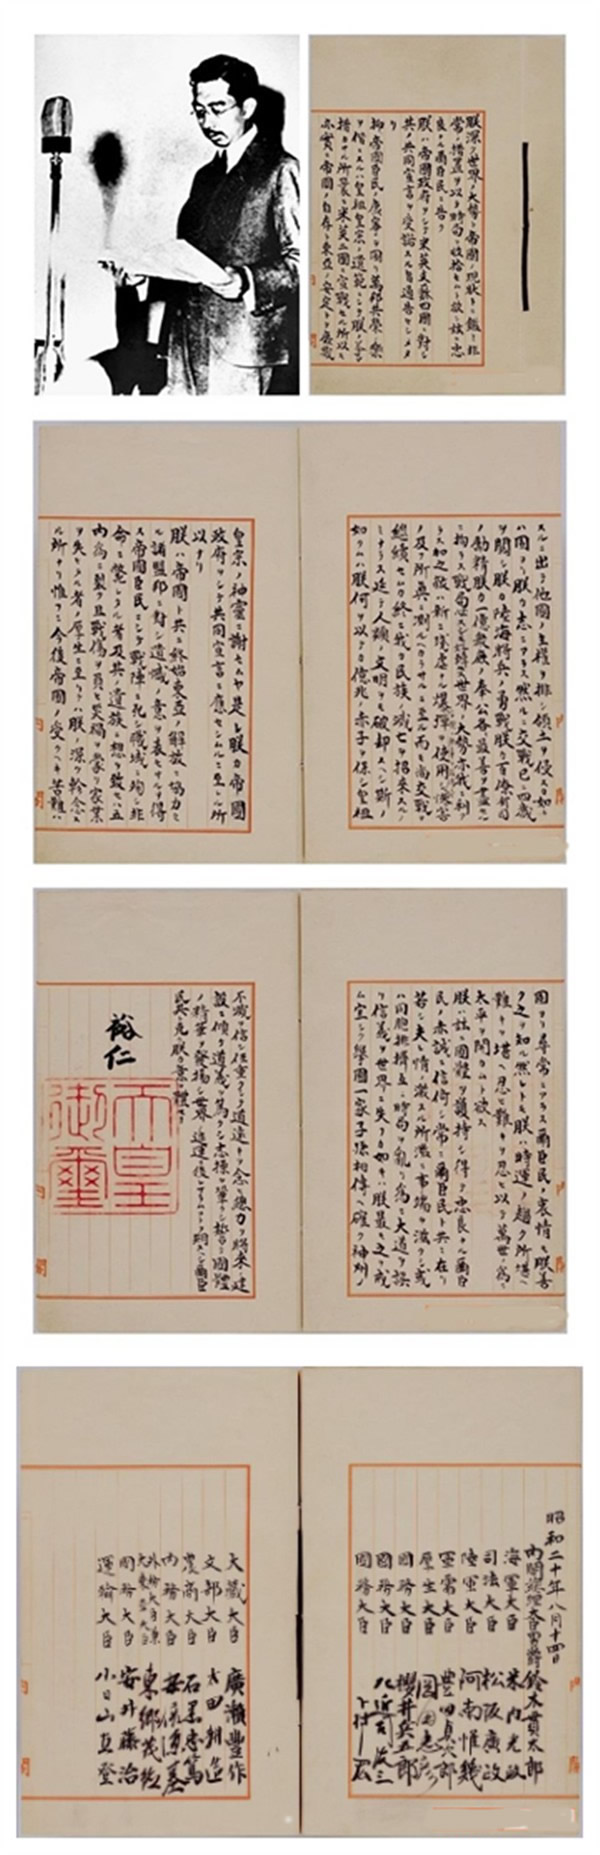 朕深ク世界ノ大勢ト帝國ノ現狀トニ鑑ミ非
常ノ措置ヲ以テ時局ヲ收拾セムト欲シ茲ニ忠
良ナル爾臣民ニ告ク
朕ハ帝國政府ヲシテ米英支蘇四國ニ對シ
其ノ共同宣言ヲ受諾スル旨通告セシメタ
リ
抑帝國臣民ノ康寧ヲ圖リ萬邦共榮ノ樂
ヲ偕ニスルハ皇祖皇宗ノ遺範ニシテ朕ノ拳々
措カサル所曩ニ米英二國ニ宣戰セル所以モ
亦實ニ帝國ノ自存ト東亞ノ安定トヲ庶幾
スルニ出テ他國ノ主權ヲ排シ領土ヲ侵スカ如キ
ハ固ヨリ朕カ志ニアラス然ルニ交戰已ニ四歲
ヲ閱シ朕カ陸海將兵ノ勇戰朕カ百僚有司
ノ勵精朕カ一億衆庶ノ奉公各最善ヲ盡セル
ニ拘ラス戰局必スシモ好轉セス世界ノ大勢亦我ニ利ア
ラス加之敵ハ新ニ殘虐ナル爆彈ヲ使用シ慘害
ノ及フ所眞ニ測ルヘカラサルニ至ル而モ尚交戰ヲ
繼續セムカ終ニ我カ民族ノ滅亡ヲ招來スルノ
ミナラス延テ人類ノ文明ヲモ破却スヘシ斯ノ
如クムハ朕何ヲ以テカ億兆ノ赤子ヲ保シ皇祖
皇宗ノ神靈ニ謝セムヤ是レ朕カ帝國
政府ヲシテ共同宣言ニ應セシムルニ至レル所
以ナリ
朕ハ帝國ト共ニ終始東亞ノ解放ニ協力セ
ル諸盟邦ニ對シ遺憾ノ意ヲ表セサルヲ得
ス帝國臣民ニシテ戰陣ニ死シ職域ニ殉シ非
命ニ斃レタル者及其ノ遺族ニ想ヲ致セハ五
內爲ニ裂ク且戰傷ヲ負ヒ災禍ヲ蒙リ家業
ヲ失ヒタル者ノ厚生ニ至リテハ朕ノ深ク軫念ス
ル所ナリ惟フニ今後帝國ノ受クヘキ苦難ハ
固ヨリ尋常ニアラス爾臣民ノ衷情モ朕善
ク之ヲ知ル然レトモ朕ハ時運ノ趨ク所堪ヘ
難キヲ堪ヘ忍ヒ難キヲ忍ヒ以テ萬世ノ爲ニ
太平ヲ開カムト欲ス
朕ハ茲ニ國體ヲ護持シ得テ忠良ナル爾臣
民ノ赤誠ニ信倚シ常ニ爾臣民ト共ニ在リ
若シ夫レ情ノ激スル所濫ニ事端ヲ滋クシ或
ハ同胞排擠互ニ時局ヲ亂リ爲ニ大道ヲ誤
リ信義ヲ世界ニ失フカ如キハ朕最モ之ヲ戒
ム宜シク擧國一家子孫相傳ヘ確ク神州ノ
不滅ヲ信シ任重クシテ道遠キヲ念ヒ總力ヲ將來ノ建
設ニ傾ケ道義ヲ篤クシ志操ヲ鞏クシ誓テ國體
ノ精華ヲ發揚シ世界ノ進運ニ後レサラムコトヲ期スヘシ爾臣
民其レ克ク朕カ意ヲ體セヨ
裕仁
天皇
御璽
昭和二十年八月十四日
內閣總理大臣男爵 鈴木貫太郎
海軍大臣 米內光政
司法大臣 松阪廣政
陸軍大臣 阿南惟幾
軍需大臣 豐田貞次郎
厚生大臣 岡田忠彥
國務大臣 櫻井兵五郎
國務大臣 左近司政三
國務大臣 下村宏
大藏大臣 廣瀨豐作
文部大臣 太田耕造
農商大臣 石黑忠篤
內務大臣 安倍源基
外務大臣兼大東亞大臣 東鄕茂德
國務大臣 安井藤治
運輸大臣 小日山直登